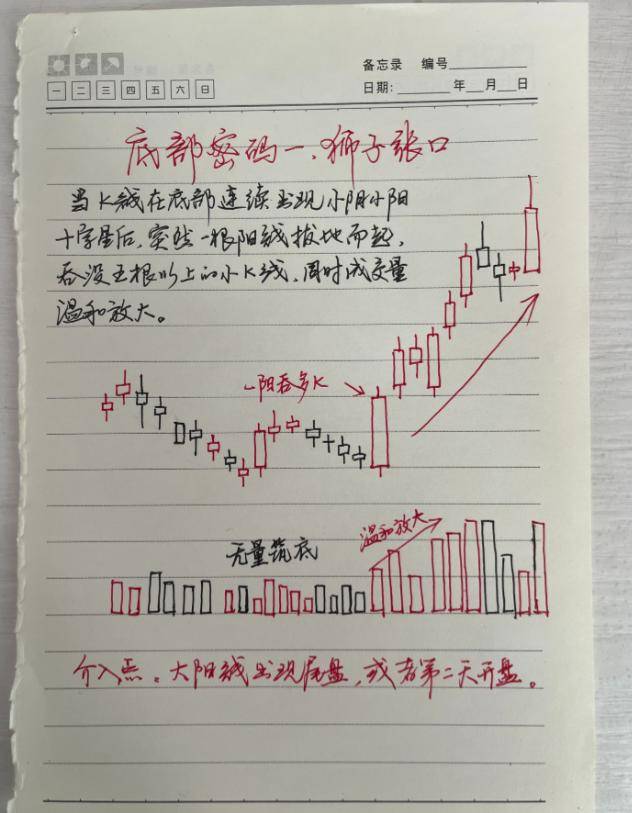 备忘录 编号
一 二 三 四 五 六 日
日期: 年 月 日
底部密码一、狮子张口
当K线在底部连续出现小阴小阳
十字星后,突然一根阳线拔地而起,
吞没五根以上的小K线,同时成交量
温和放大。
一阳吞多K
温和放大
无量筑底
介入点。大阳线出现尾盘,或者第二天开盘。